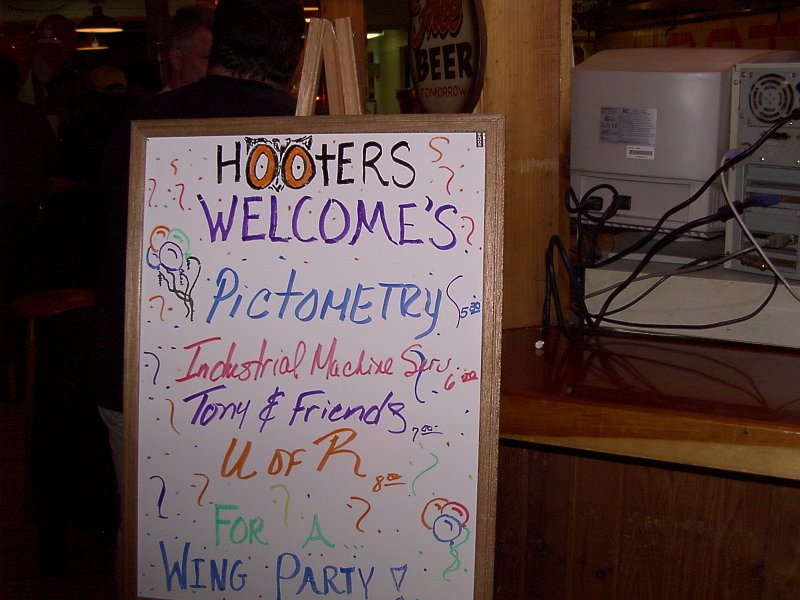 Free
BEER
TOMORROW
HOOtERS
WELCOME'S
PICtOMETRY 5:00
Industrial Machine Serv. 6:00
Tony & Friends 7:00
U OF R 8:00
FOR A...
WING PARTY!